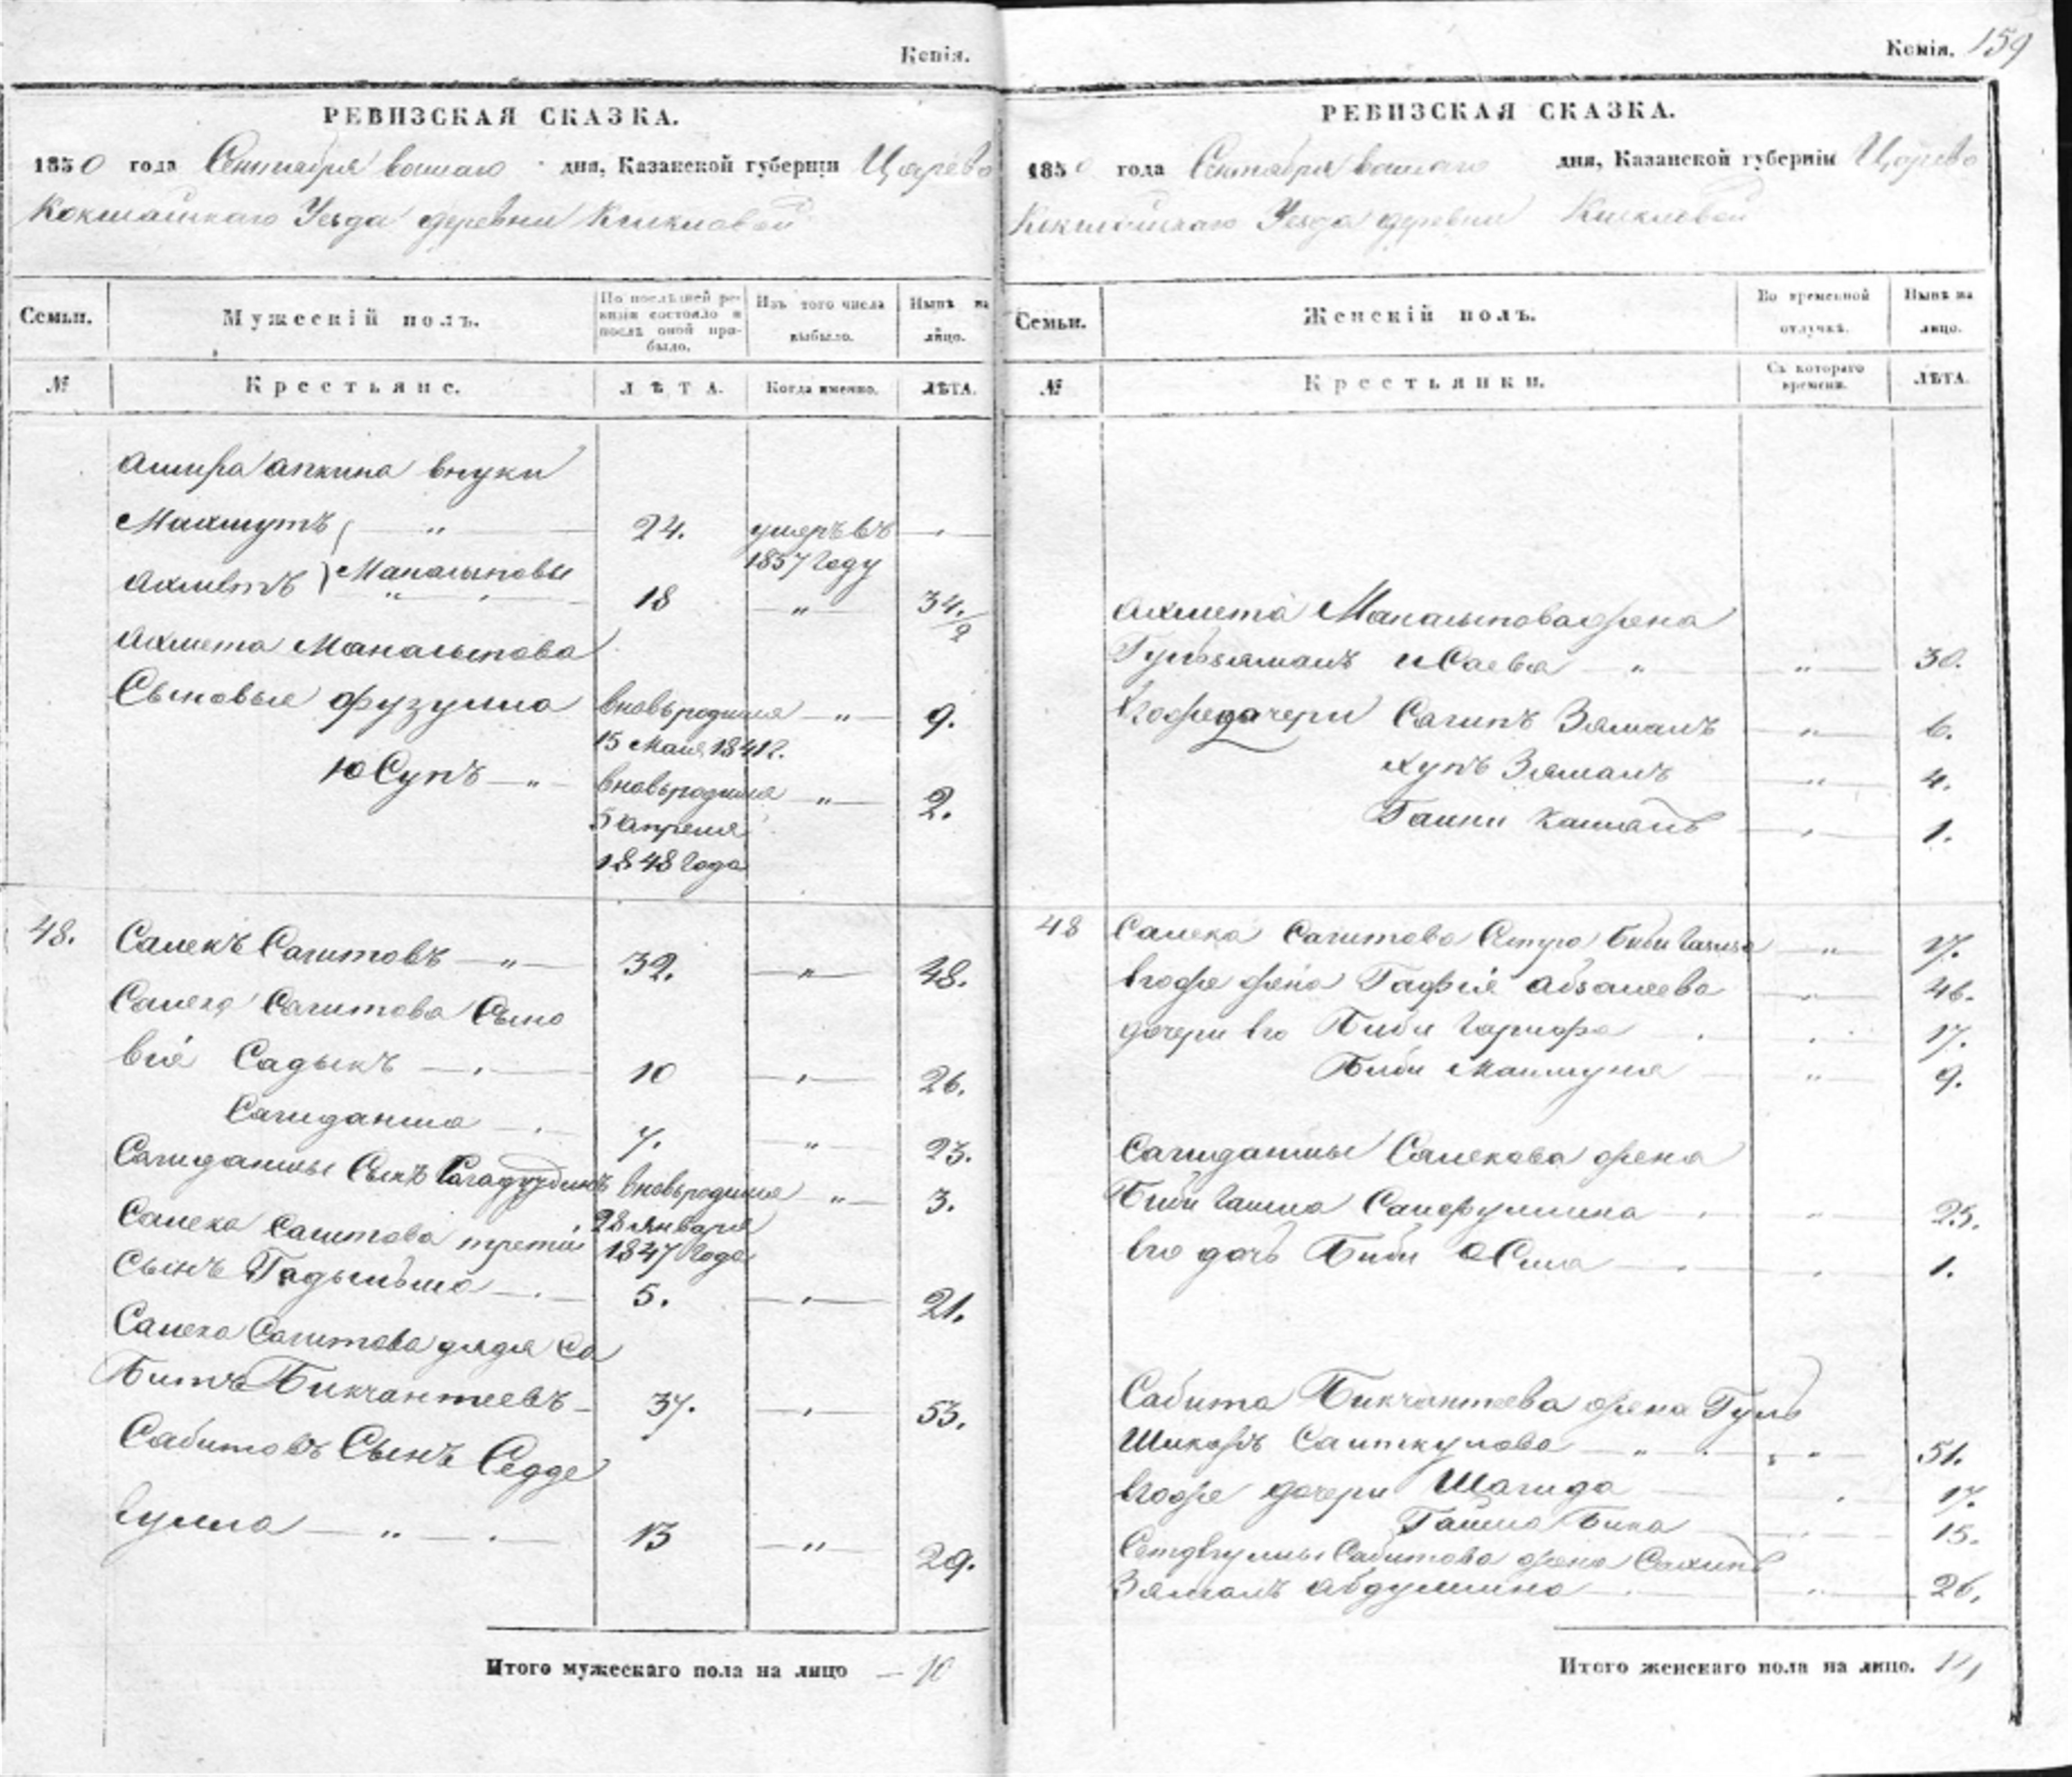 Копія.
РЕВИЗСКАЯ СКАЗКА.
1850 года Сентября дня, Казанской губерніи Царево
Кокшайскаго Уезда деревни
Семьи.
Мужескій полъ.
По послѣдней ревизіи состояло и послѣ оной прибыло.
Изъ того числа выбыло.
Нынѣ на лицо.
№
Крестьяне.
ЛѢТА.
Когда именно.
ЛѢТА.
Амира Апкина внуки
Махмутъ — " — 24. умеръ въ —
1837 году
Ахметъ } Манаыповы 18 — " — 34./2
Ахмета Манаыпова
Сыновья Фузулла вновьродился — " — 9.
15 Мая 1841г.
Юсупъ — " вновьродился — " — 2.
5 Апреля
1848 Года
48. Салекъ Сагитовъ — " — 32. — " — 48.
Салека Сагитова Сыно
вiя Садыкъ — 10 — 26.
Сагиданша — 7. — " — 23.
Сагиданшы Сынъ вновьродился — " — 3.
28 Января
1847 Года
Салека Сагитова третiй
Сынъ Гадыльша — 5. — 21.
Салека Сагитова дядя Са
битъ Бикчантеевъ — 37. — 53.
Сабитовъ Сынъ Седде
гулла — " — 13 — " — 29.
Итого мужескаго пола на лицо — 10
Копія. 159
РЕВИЗСКАЯ СКАЗКА.
1850 года Сентября дня, Казанской губерніи Царево
Кокшайскаго Уезда деревни
Семьи.
Женскій полъ.
Во временной отлучкѣ.
Нынѣ на лицо.
№
Крестьянки.
Съ котораго времени.
ЛѢТА.
Ахмета Манаыпова жена
Гульзямалъ иСаева — " — " — 30.
Егоже дочери Сагипъ Зямалъ — " — 6.
Хупъ Зямалъ — " — 4.
Камалъ — 1.
48 Салека Сагитова Сестра Биби — " — 17.
Егоже жена Гафiя Абзалеева — 46.
дочери Его Биби Гарифа — 17.
Биби Маимуна — " — 9.
Сагиданшы Салекова жена
Биби Гайша Сайфуллина — " — 25.
Его дочь Биби — 1.
Сабита Бикчантеева жена Гуль
Шикаръ Саиткулова — " — " — 51.
Егоже дочери Шагида — 17.
Гайша Бика — 15.
Сетдегуллы Сабитова жена Сахипъ
Зямалъ Абдуллина — " — 26.
Итого женскаго пола на лицо.